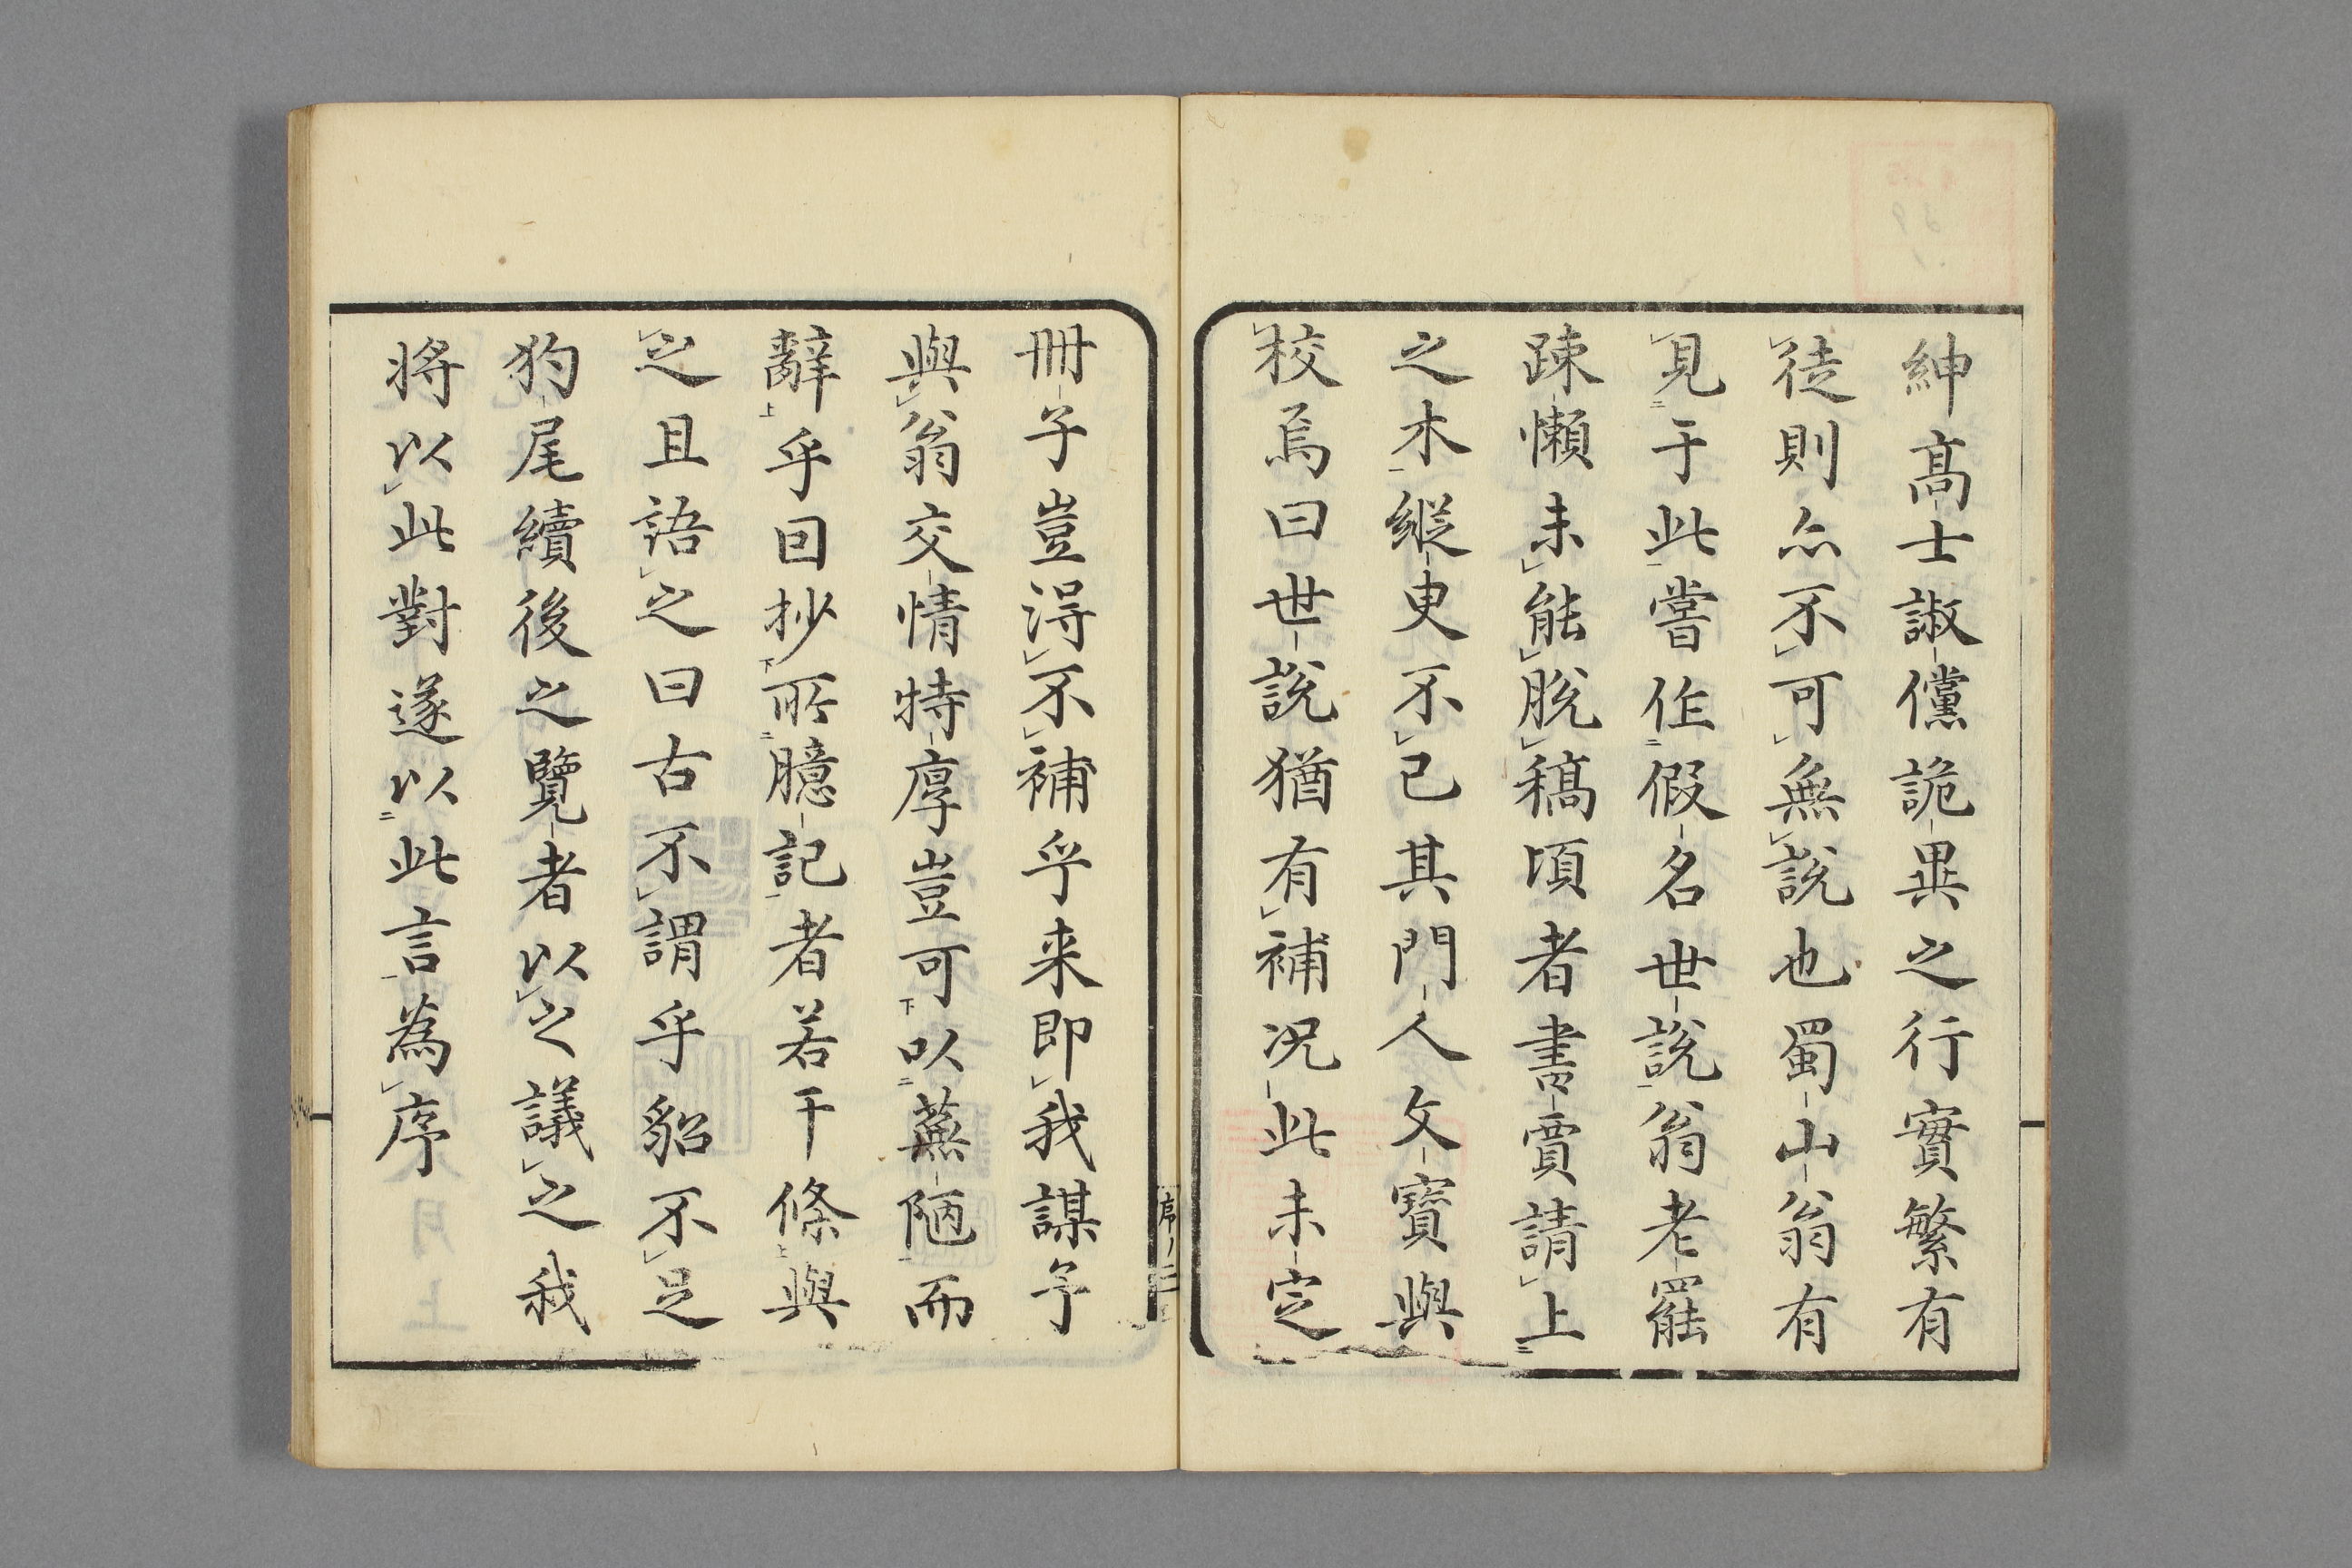 紳高士諔儻詭異之行實繁有
徒則亦不可無説也蜀山翁有
見于此嘗作假名世説翁老罷
踈懶未能脱稿頃者書賈請上
之木縦臾不已其門人文寶與
校焉曰世説猶有補况此未定
冊子豈得不補乎来即我謀予
與翁交情特厚豈可以蕪陋而
辭乎回抄所臆記者若干條與
之且語之曰古不謂乎貂不足
狗尾續後之覽者以之議之我
将以此對遂以此言為序
序ノ二